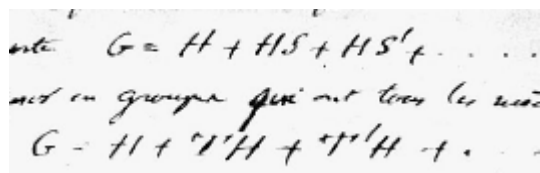 G = H + HS + HS' + . . . .
en groupes qui ont tous les
G = H + TH + T'H + . .